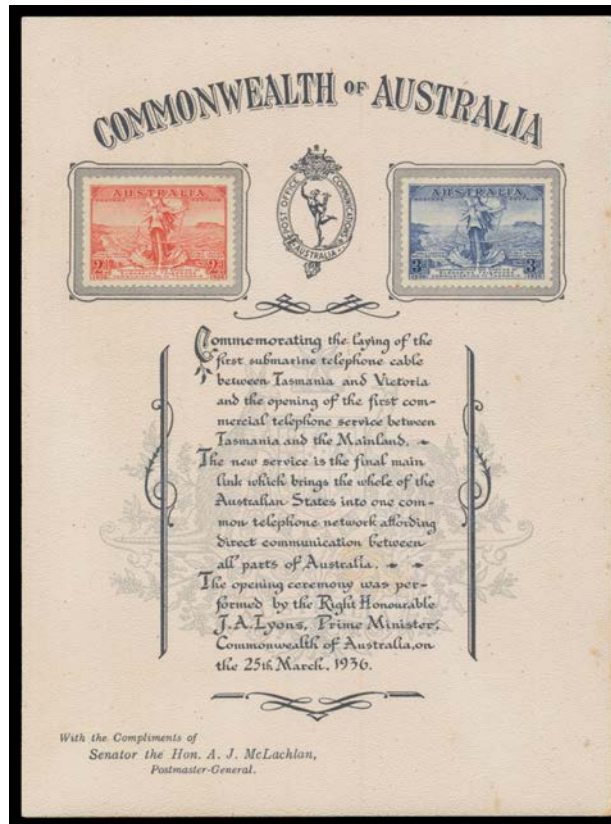 COMMONWEALTH OF AUSTRALIA
AUSTRALIA
2D 2D
POST OFFICE COMMUNICATIONS
AUSTRALIA
AUSTRALIA
3D 3D
Commemorating the laying of the
first submarine telephone cable
between Tasmania and Victoria
and the opening of the first com-
mercial telephone service between
Tasmania and the Mainland.
The new service is the final main
link which brings the whole of the
Australian States into one com-
mon telephone network affording
direct communication between
all parts of Australia.
The opening ceremony was per-
formed by the Right Honourable
J.A.Lyons, Prime Minister,
Commonwealth of Australia, on
the 25th March, 1936.
With the Compliments of
Senator the Hon. A. J. McLachlan,
Postmaster-General.